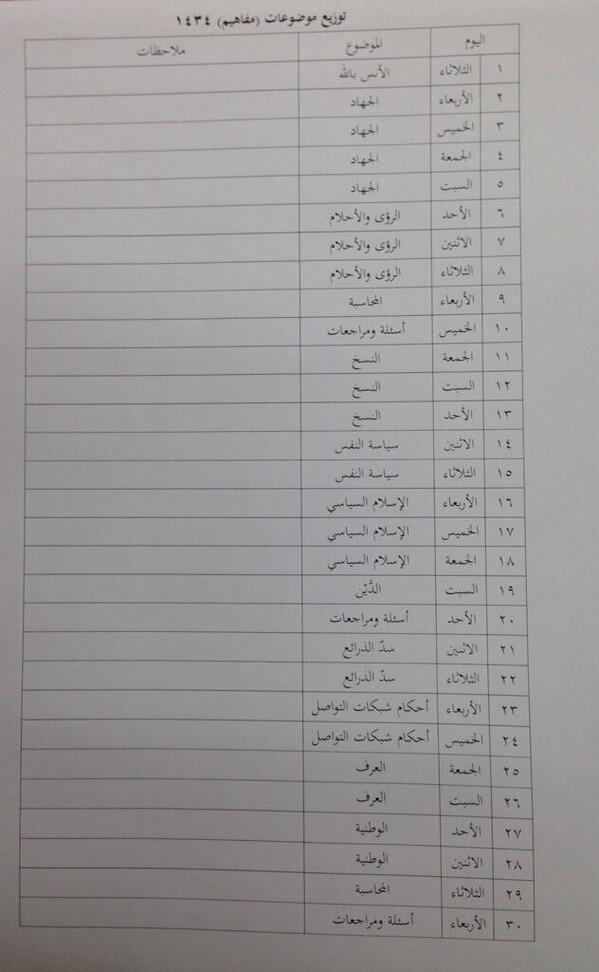 توزيع موضوعات (مفاهيم) ١٤٣٤
اليوم الموضوع ملاحظات
١ الثلاثاء الأنس بالله
٢ الأربعاء الجهاد
٣ الخميس الجهاد
٤ الجمعة الجهاد
٥ السبت الجهاد
٦ الأحد الرؤى والأحلام
٧ الاثنين الرؤى والأحلام
٨ الثلاثاء الرؤى والأحلام
٩ الأربعاء المحاسبة
١٠ الخميس أسئلة ومراجعات
١١ الجمعة النسخ
١٢ السبت النسخ
١٣ الأحد النسخ
١٤ الاثنين سياسة النفس
١٥ الثلاثاء سياسة النفس
١٦ الأربعاء الإسلام السياسي
١٧ الخميس الإسلام السياسي
١٨ الجمعة الإسلام السياسي
١٩ السبت الدَّيْن
٢٠ الأحد أسئلة ومراجعات
٢١ الاثنين سدّ الذرائع
٢٢ الثلاثاء سدّ الذرائع
٢٣ الأربعاء أحكام شبكات التواصل
٢٤ الخميس أحكام شبكات التواصل
٢٥ الجمعة العرف
٢٦ السبت العرف
٢٧ الأحد الوطنية
٢٨ الاثنين الوطنية
٢٩ الثلاثاء المحاسبة
٣٠ الأربعاء أسئلة ومراجعات